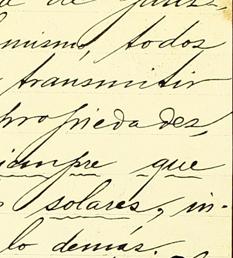 de
mismo, todos
transmitir
propiedades,
siempre que
solares, in-
lo demás.